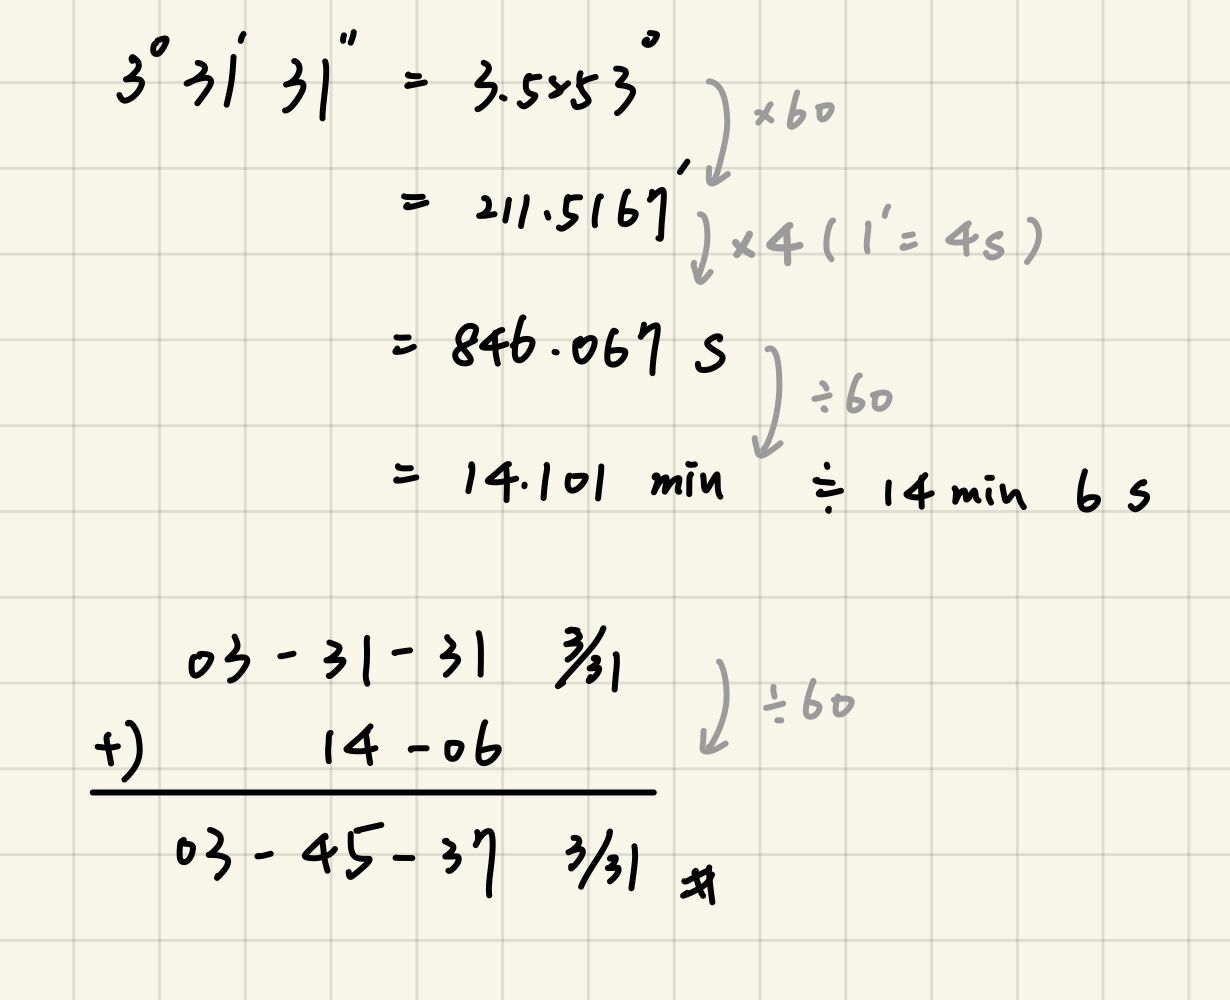 3° 31' 31" = 3.5253°
×60
= 211.5167'
×4 ( 1' = 4s )
= 846.067 s
÷60
= 14.101 min ≑ 14 min 6 s
03 - 31 - 31 3/31
÷60
+) 14 - 06
03 - 45 - 37 3/31 #